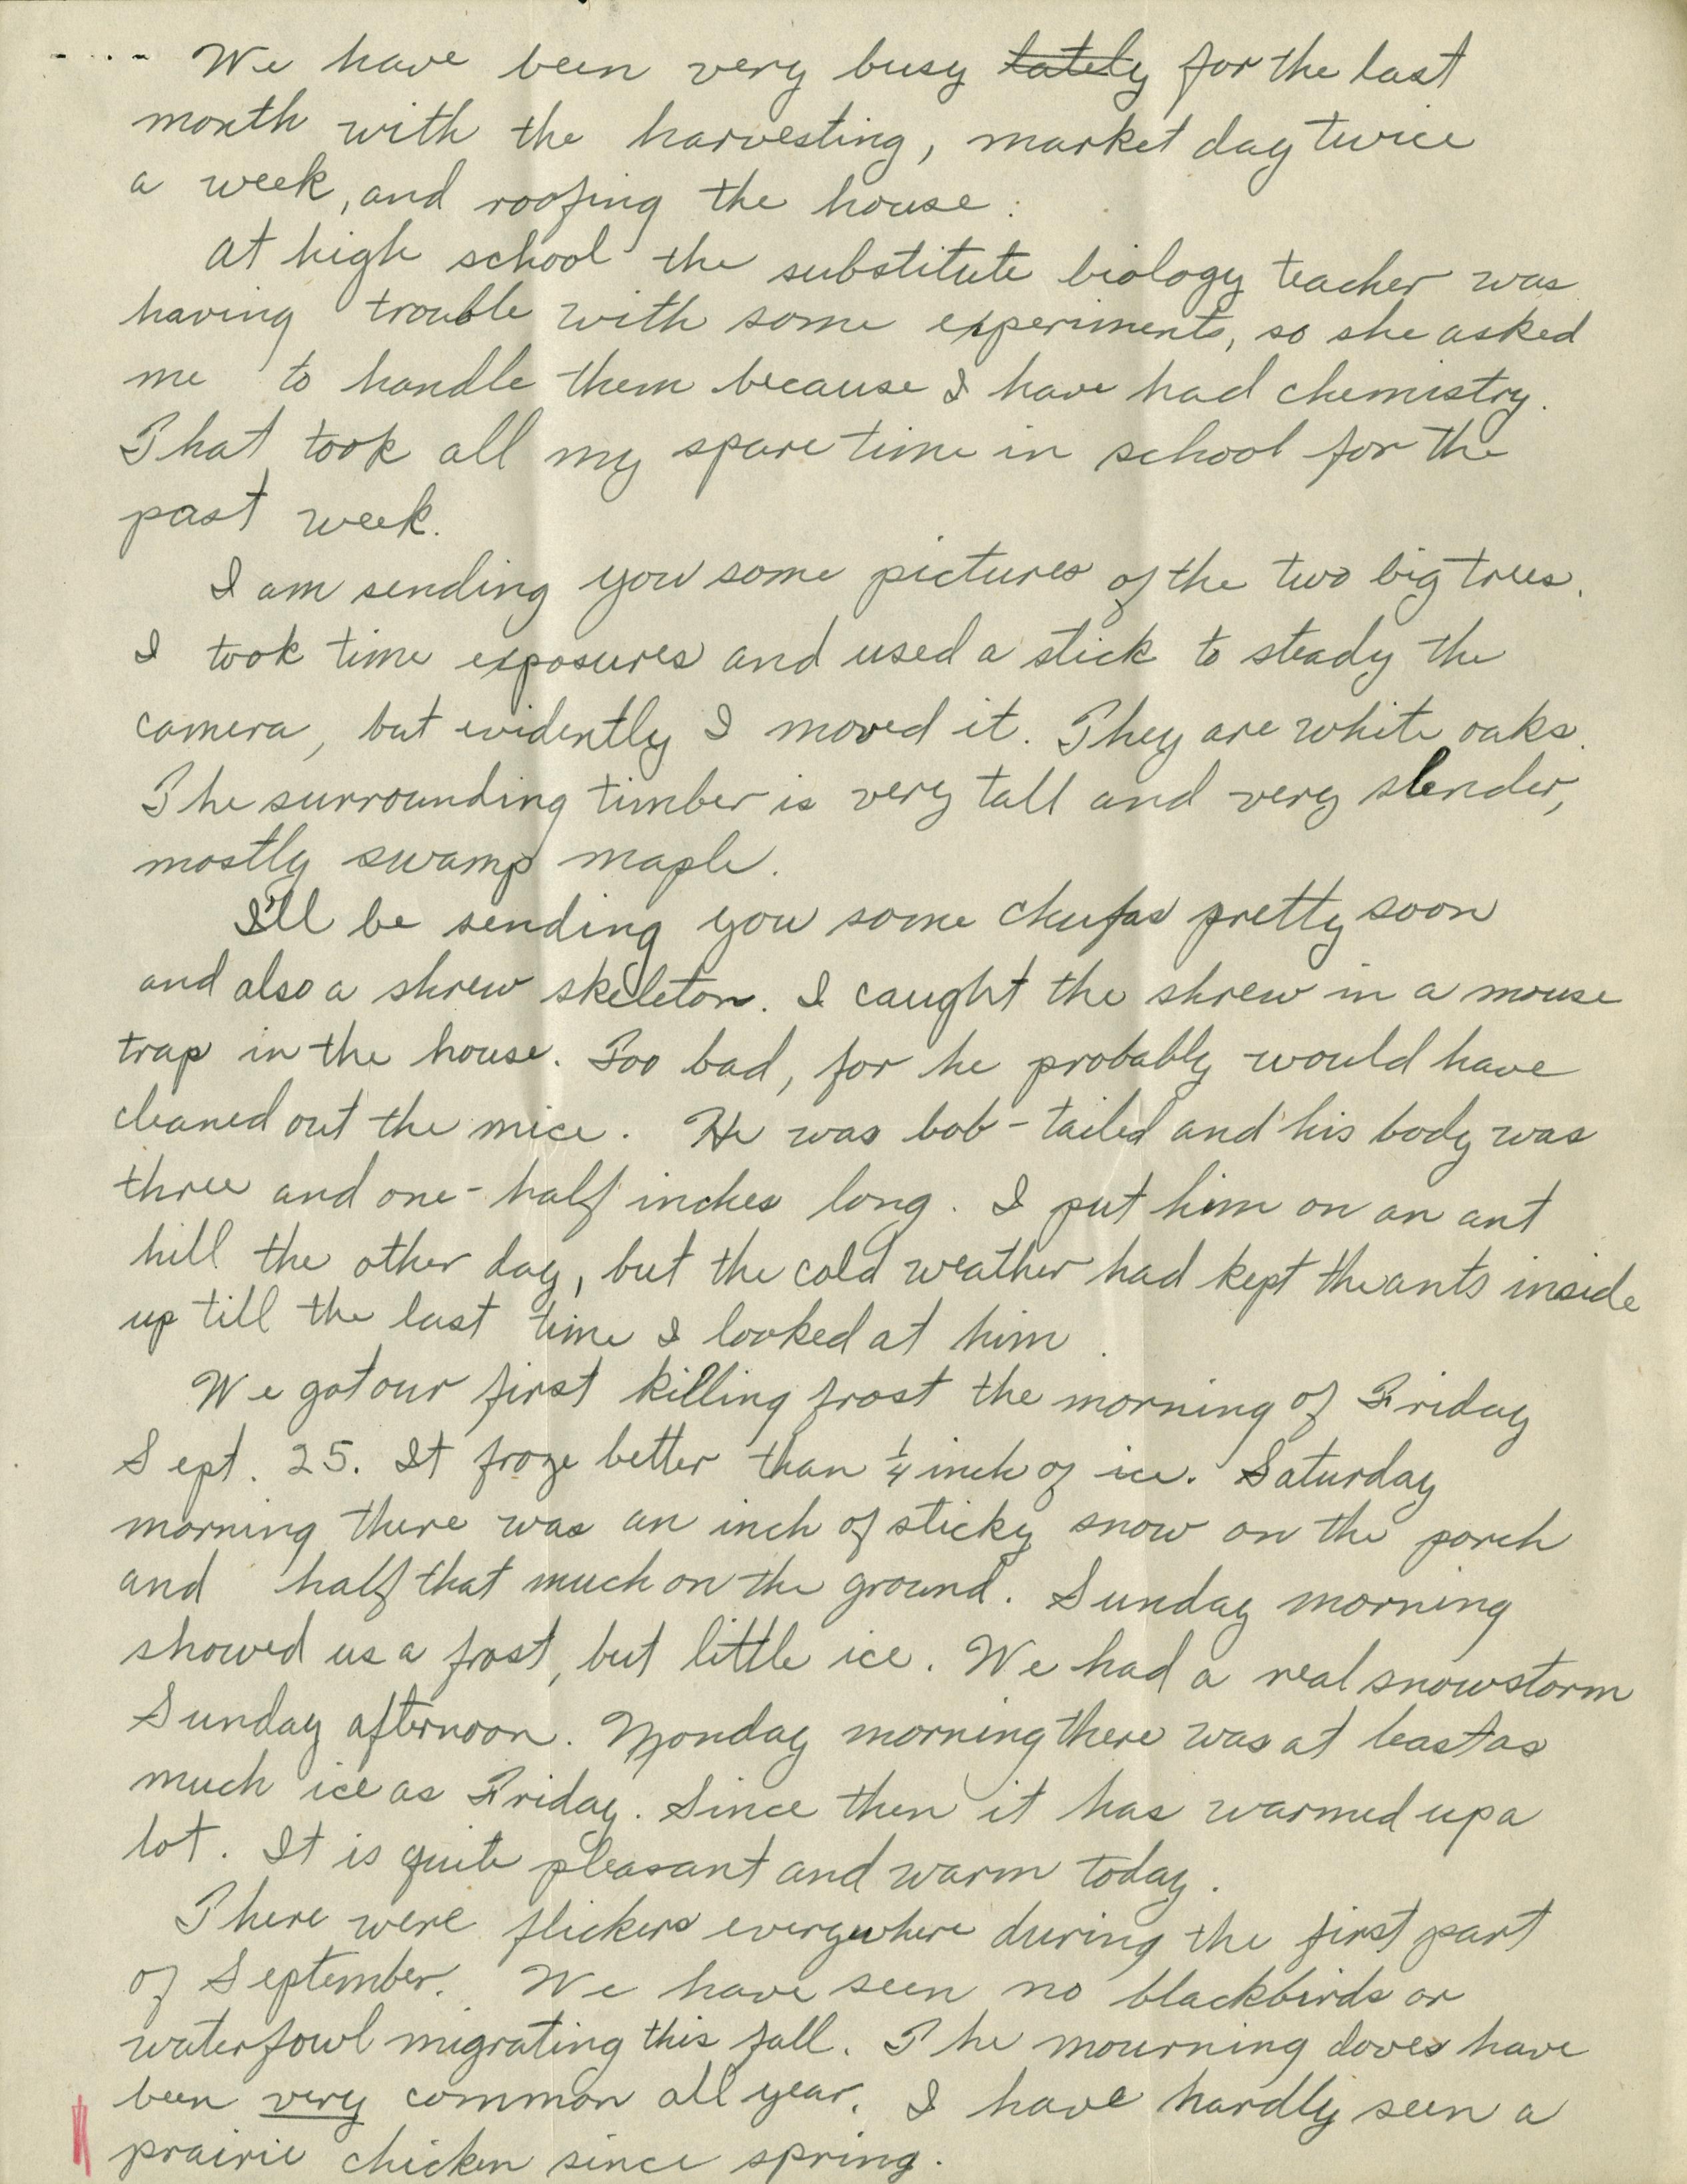 - . . - We have been very busy lately for the last
month with the harvesting, market day twice
a week, and roofing the house.
At high school the substitute biology teacher was
having trouble with some experiments, so she asked
me to handle them because I have had chemistry.
That took all my spare time in school for the
past week.
I am sending you some pictures of the two big trees.
I took time exposures and used a stick to steady the
camera, but evidently I moved it. They are white oaks.
The surrounding timber is very tall and very slender,
mostly swamp maple.
I'll be sending you some chufas pretty soon
and also a shrew skeleton. I caught the shrew in a mouse
trap in the house. Too bad, for he probably would have
cleaned out the mice. He was bob-tailed and his body was
three and one-half inches long. I put him on an ant
hill the other day, but the cold weather had kept the ants inside
up till the last time I looked at him.
We got our first killing frost the morning of Friday
Sept. 25. It froze better than 1/4 inch of ice. Saturday
morning there was an inch of sticky snow on the porch
and half that much on the ground. Sunday morning
showed us a frost, but little ice. We had a real snowstorm
Sunday afternoon. Monday morning there was at least as
much ice as Friday. Since then it has warmed up a
lot. It is quite pleasant and warm today.
There were flickers everywhere during the first part
of September. We have seen no blackbirds or
waterfowl migrating this fall. The mourning doves have
been very common all year. I have hardly seen a
prairie chicken since spring.